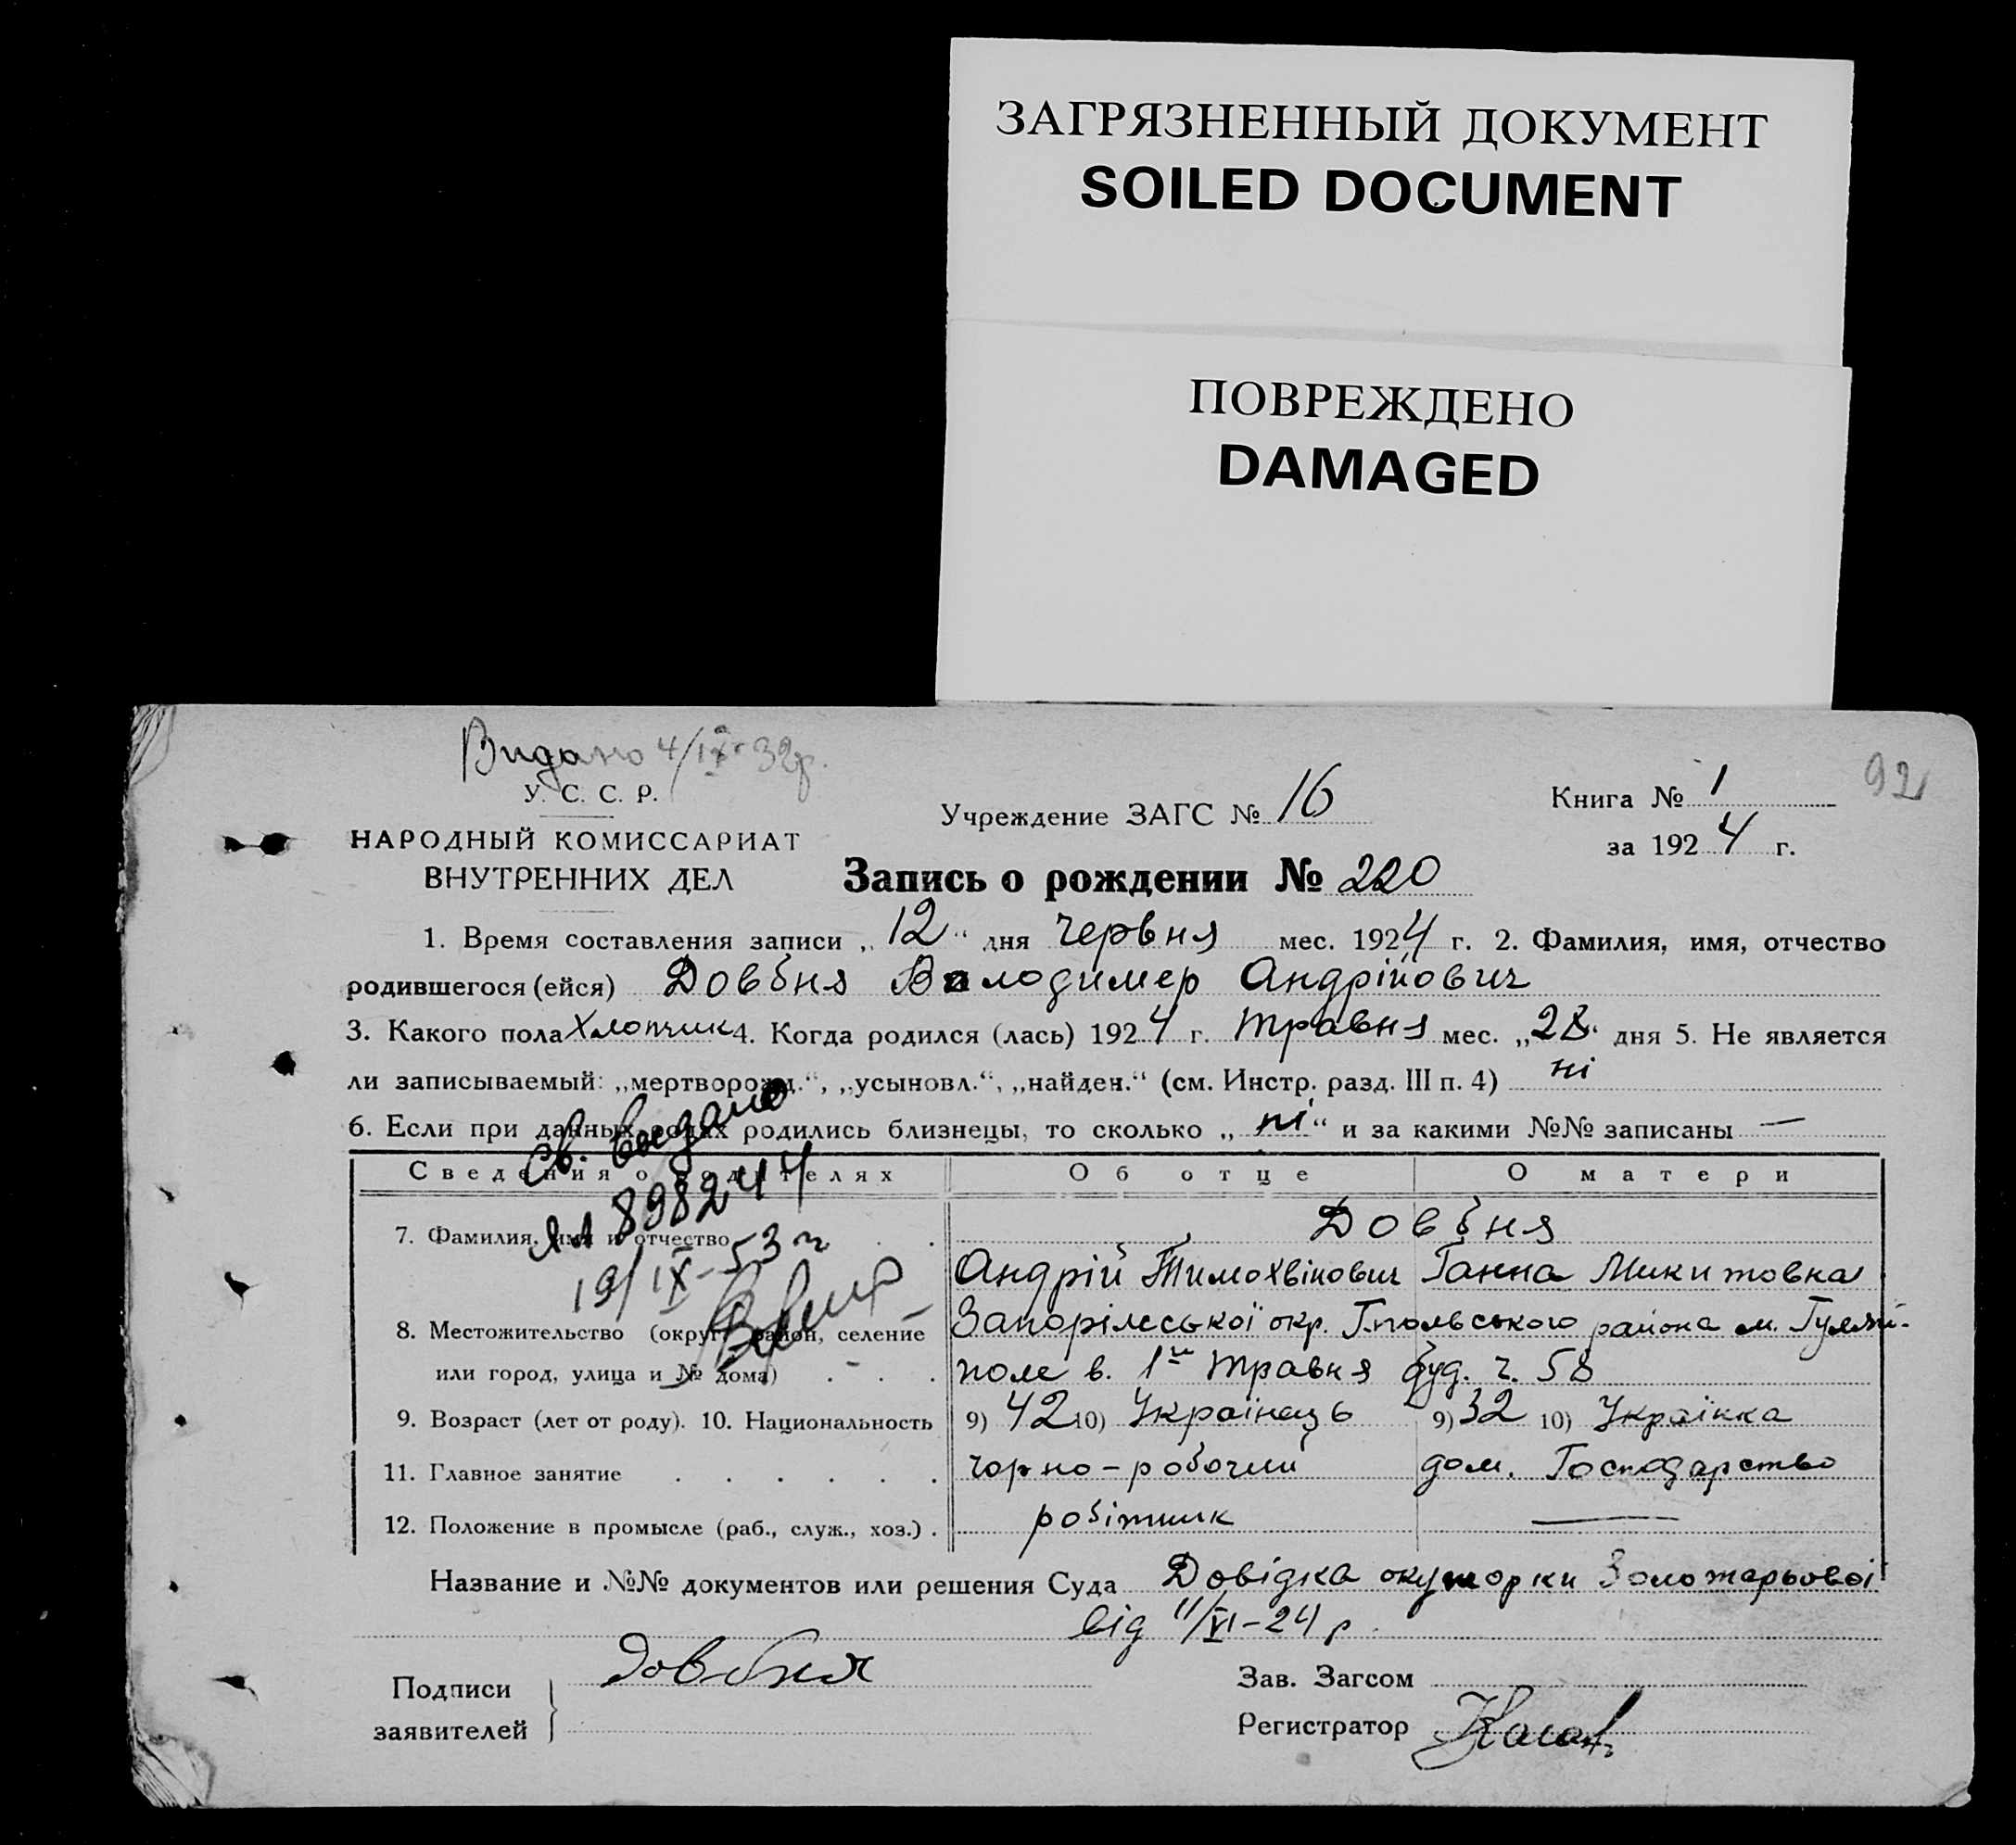 ЗАГРЯЗНЕННЫЙ ДОКУМЕНТ
SOILED DOCUMENT
ПОВРЕЖДЕНО
DAMAGED
Видано 4/IX-32р.
92
У. С. С. Р.
НАРОДНЫЙ КОМИССАРИАТ
ВНУТРЕННИХ ДЕЛ
Учреждение ЗАГС № 16
Книга № 1
за 1924 г.
Запись о рождении № 220
1. Время составления записи „12“ дня Червня мес. 1924 г. 2. Фамилия, имя, отчество
родившегося (ейся) Довбня Володимер Андрійович
3. Какого пола Хлопчик 4. Когда родился (лась) 1924 г. Травня мес. „28“ дня 5. Не является
ли записываемый: „мертворожд.“, „усыновл.“, „найден.“ (см. Инстр. разд. III п. 4) ні
6. Если при данных родах родились близнецы, то сколько „ні“ и за какими №№ записаны —
Св.
898244
19/IX-53 г
Сведения о родителях Об отце О матери
7. Фамилия, имя и отчество Довбня
Андрій Тимохвійович Ганна Микитовна
8. Местожительство (округ, район, селение Запорілської окр. Г.польського района м. Гуляй-
или город, улица и № дома) поле в. 1го Травня буд. ч. 58
9. Возраст (лет от роду). 10. Национальность 9) 42 10) Українець 9) 32 10) Українка
11. Главное занятие чорно-робочий дом. Господарство
12. Положение в промысле (раб., служ., хоз.) робітник —
Название и №№ документов или решения Суда Довідка окушорки Золотарьової
від 11/VI-24 р.
Подписи
заявителей
Довбня
Зав. Загсом
Регистратор